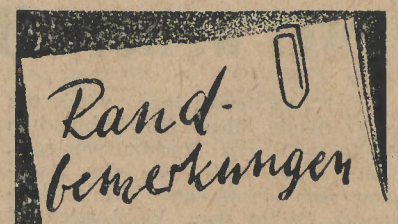 Rand-
bemerkungen